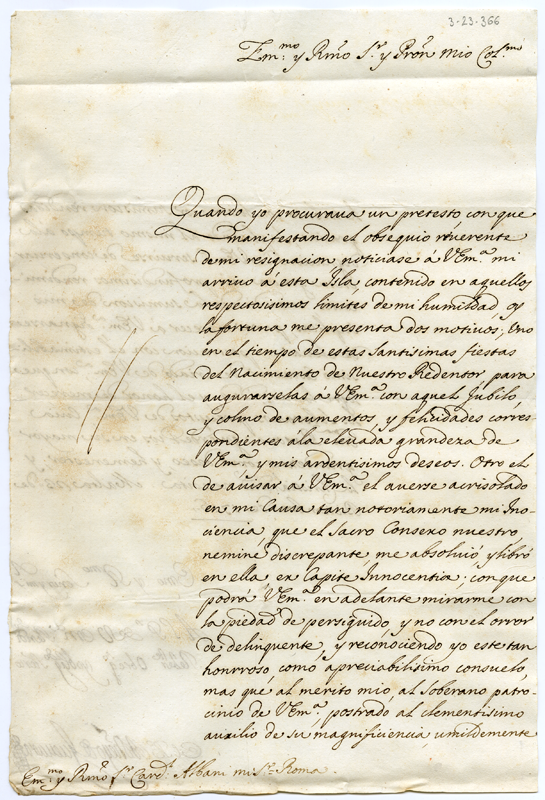 3-23-366
Em.mo y Rmo Sr. y Pron mio Col.mo
Quando yo procuraua un pretesto con que
manifestando el obsequio reuerente
de mi resignacion noticiase á VEm.a mi
arriuo á esta Isla, contenido en aquellos
respectosisimos limites de mi humildad, oy
la fortuna me presenta dos motiuos; Uno
en el tiempo de estas santisimas fiestas
del Nacimiento de Nuestro Redentor, para
augurarselas á VEm.a con aquel Jubilo,
y colmo de aumentos, y felicidades corres-
pondientes ala eleuada grandeza de
VEm.a y mis ardentisimos deseos. Otro el
de auisar á VEm.a el auerse acrisolado
en mi Causa tan notoriamente mi Ino-
ciencia, que el Sacro Consexo nuestro
nemine discrepante, me absoluió, y libró
en ella ex Capite Innocentia; con que
podrá VEm.a en adelante mirarme con
la piedad de perseguido, y no con el orror
de delinquente, y reconociendo yo este tan
honrroso, como apreciabilisimo consuelo,
mas que al merito mio, al soberano patro-
cinio de VEm.a, postrado al clementisimo
auxilio de su magnificiencia, umildemente
Em.mo y Rmo Sr. Card.l Albani mi Sr. Roma.